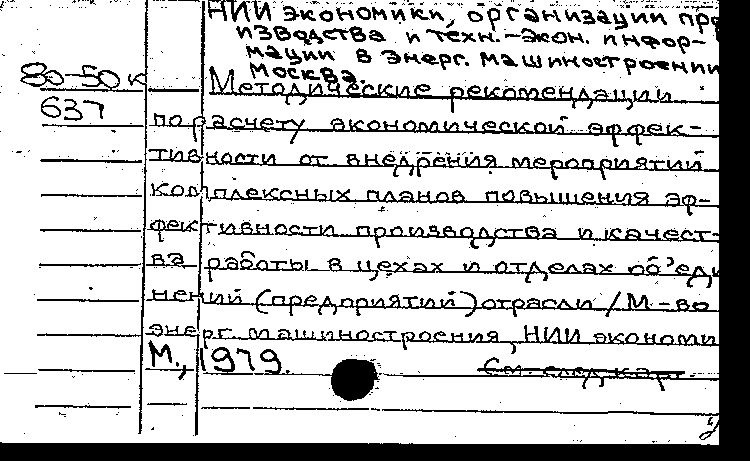 НИИ экономики, организации про
изводства и техн.-экон. инфор-
мации в энерг. машиностроении
Москва.
80-50к Методические рекомендации
637
по расчету экономической эффек-
тивности от внедрения мероприятий
комплексных планов повышения эф-
фективности производства и качест-
ва работы в цехах и отделах об'еди
нений (предприятий) отрасли / М-во
энерг. машиностроения, НИИ экономи
М., 1979.
См. след. карт.